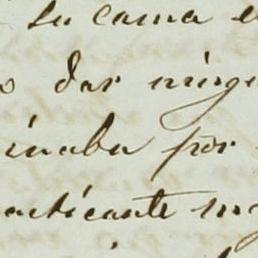 su cama e
o dar ningu
inaba por
acticante m